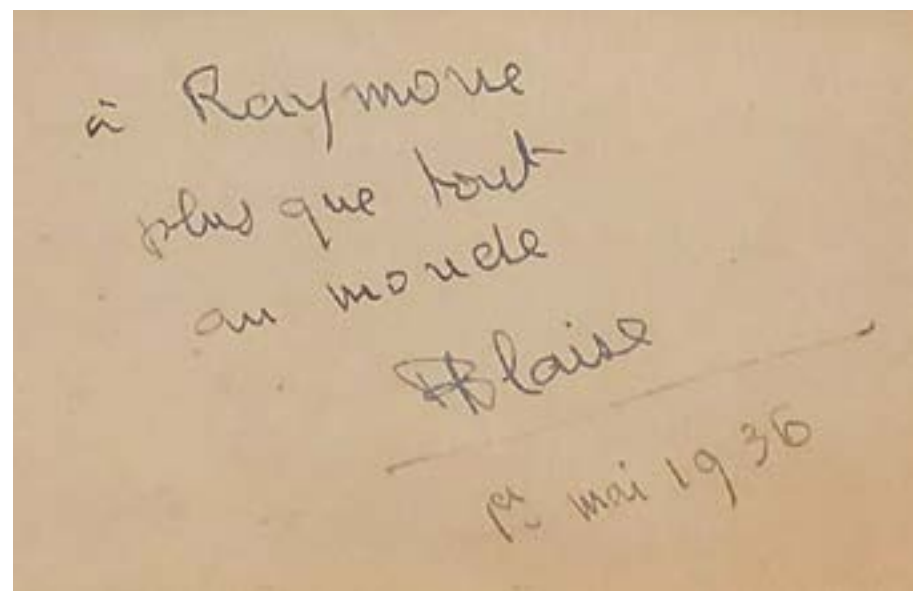 à Raymone
plus que tout
au monde
Blaise
1er mai 1936